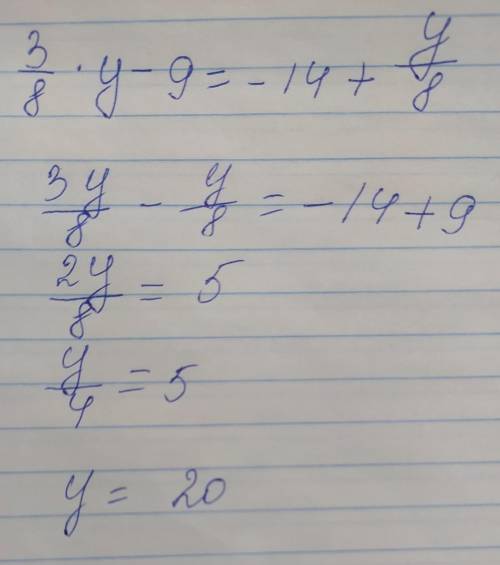 3/8 · y - 9 = -14 + y/8
3y/8 - y/8 = -14 + 9
2y/8 = 5
y/4 = 5
y = 20